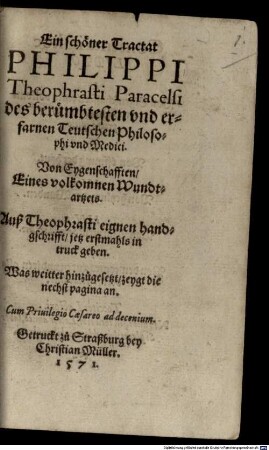 Ein schöner Tractat
PHILIPPI
Theophrasti Paracelsi
des berümbtesten vnd er-
farnen Teutschen Philoso-
phi vnd Medici.
Von Eygenschafften/
Eines volkomnen Wundt-
artzets.
Auß Theophrasti eignen hand-
gschrifft/ jetz erstmahls in
truck geben.
Was weitter hinzůgesetzt/zeygt die
nechst pagina an.
Cum Priuilegio Cæsareo ad decenium.
Getruckt zů Straßburg bey
Christian Müller.
1571.